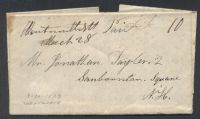 Paid 10
March 28
Mr. Jonathan Taylor. 2
Sanbornton Square
N.H.